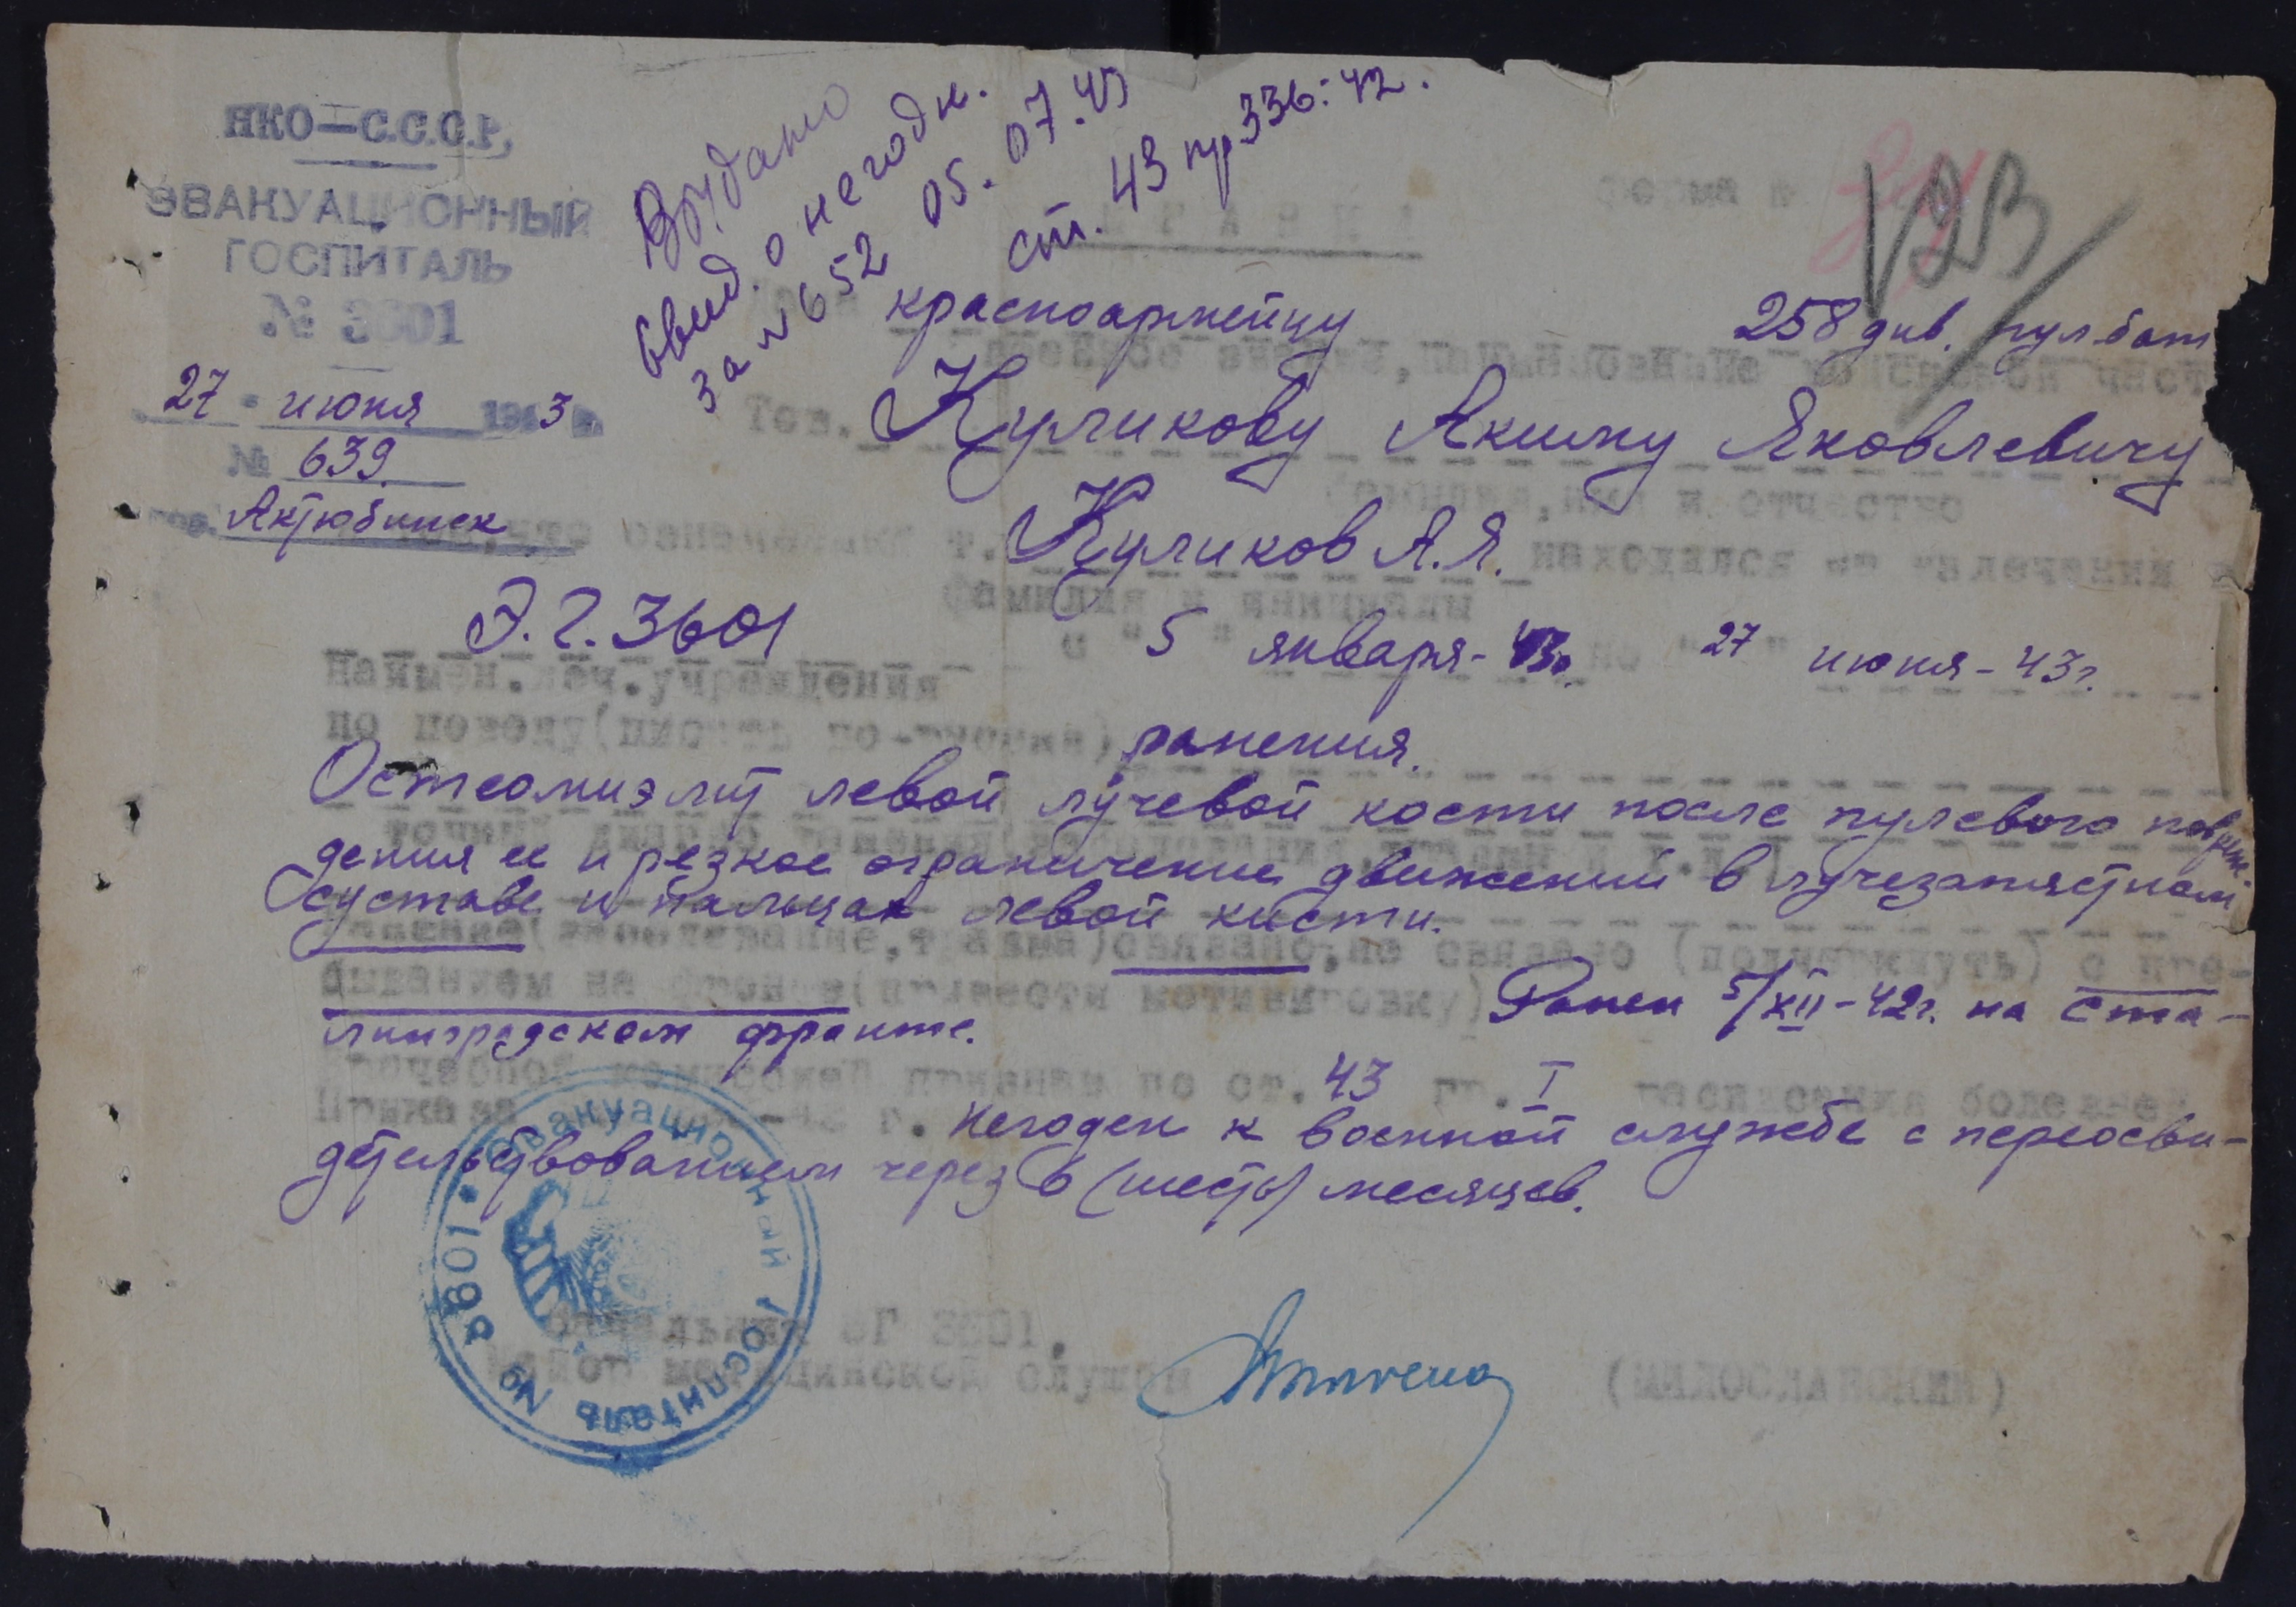 НКО—С.С.С.Р.
ЭВАКУАЦИОННЫЙ
ГОСПИТАЛЬ
№ 3601
27 июня 1943 г.
№ 639
Актюбинск
Выдано
свид. о негодн.
за № 652 05.07.43
ст. 43 пр 336:42.
форма №
123
Дана красноармейцу 258 див. пул.бат
воинское звание, наименование войсковой част
Тов. Куликову Акиму Яковлевичу
фамилия, имя и отчество
в том, что означенный т. Куликов А.Я. находился на излечении в
фамилия и инициалы
Э.Г. 3601 " 5 " января - 43г. по " 27 " июня - 43г.
наимен. леч. учреждения
по поводу (писать по-русски) ранения.
Остеомиэлит левой лучевой кости после пулевого повреж-
точный диагноз ранения, заболевания, травмы и т.п.
дения ее и резкое ограничение движений в лучезапястном
суставе и пальцах левой кисти.
Ранение (заболевание, травма) связано, не связано (подчеркнуть) с пре-
быванием на фронте (привести мотивировку) Ранен 5/XII-42г. на Ста-
линградском фронте.
Врачебной комиссией признан по ст. 43 гр. I расписания болезней
Приказа г. Негоден к военной службе с переосви-
детельствованием через 6 (шесть) месяцев.
Эвакуационный госпиталь № 3601
Начальник ЭГ 3601,
майор медицинской службы (МИЛОСЛАВСКИЙ)